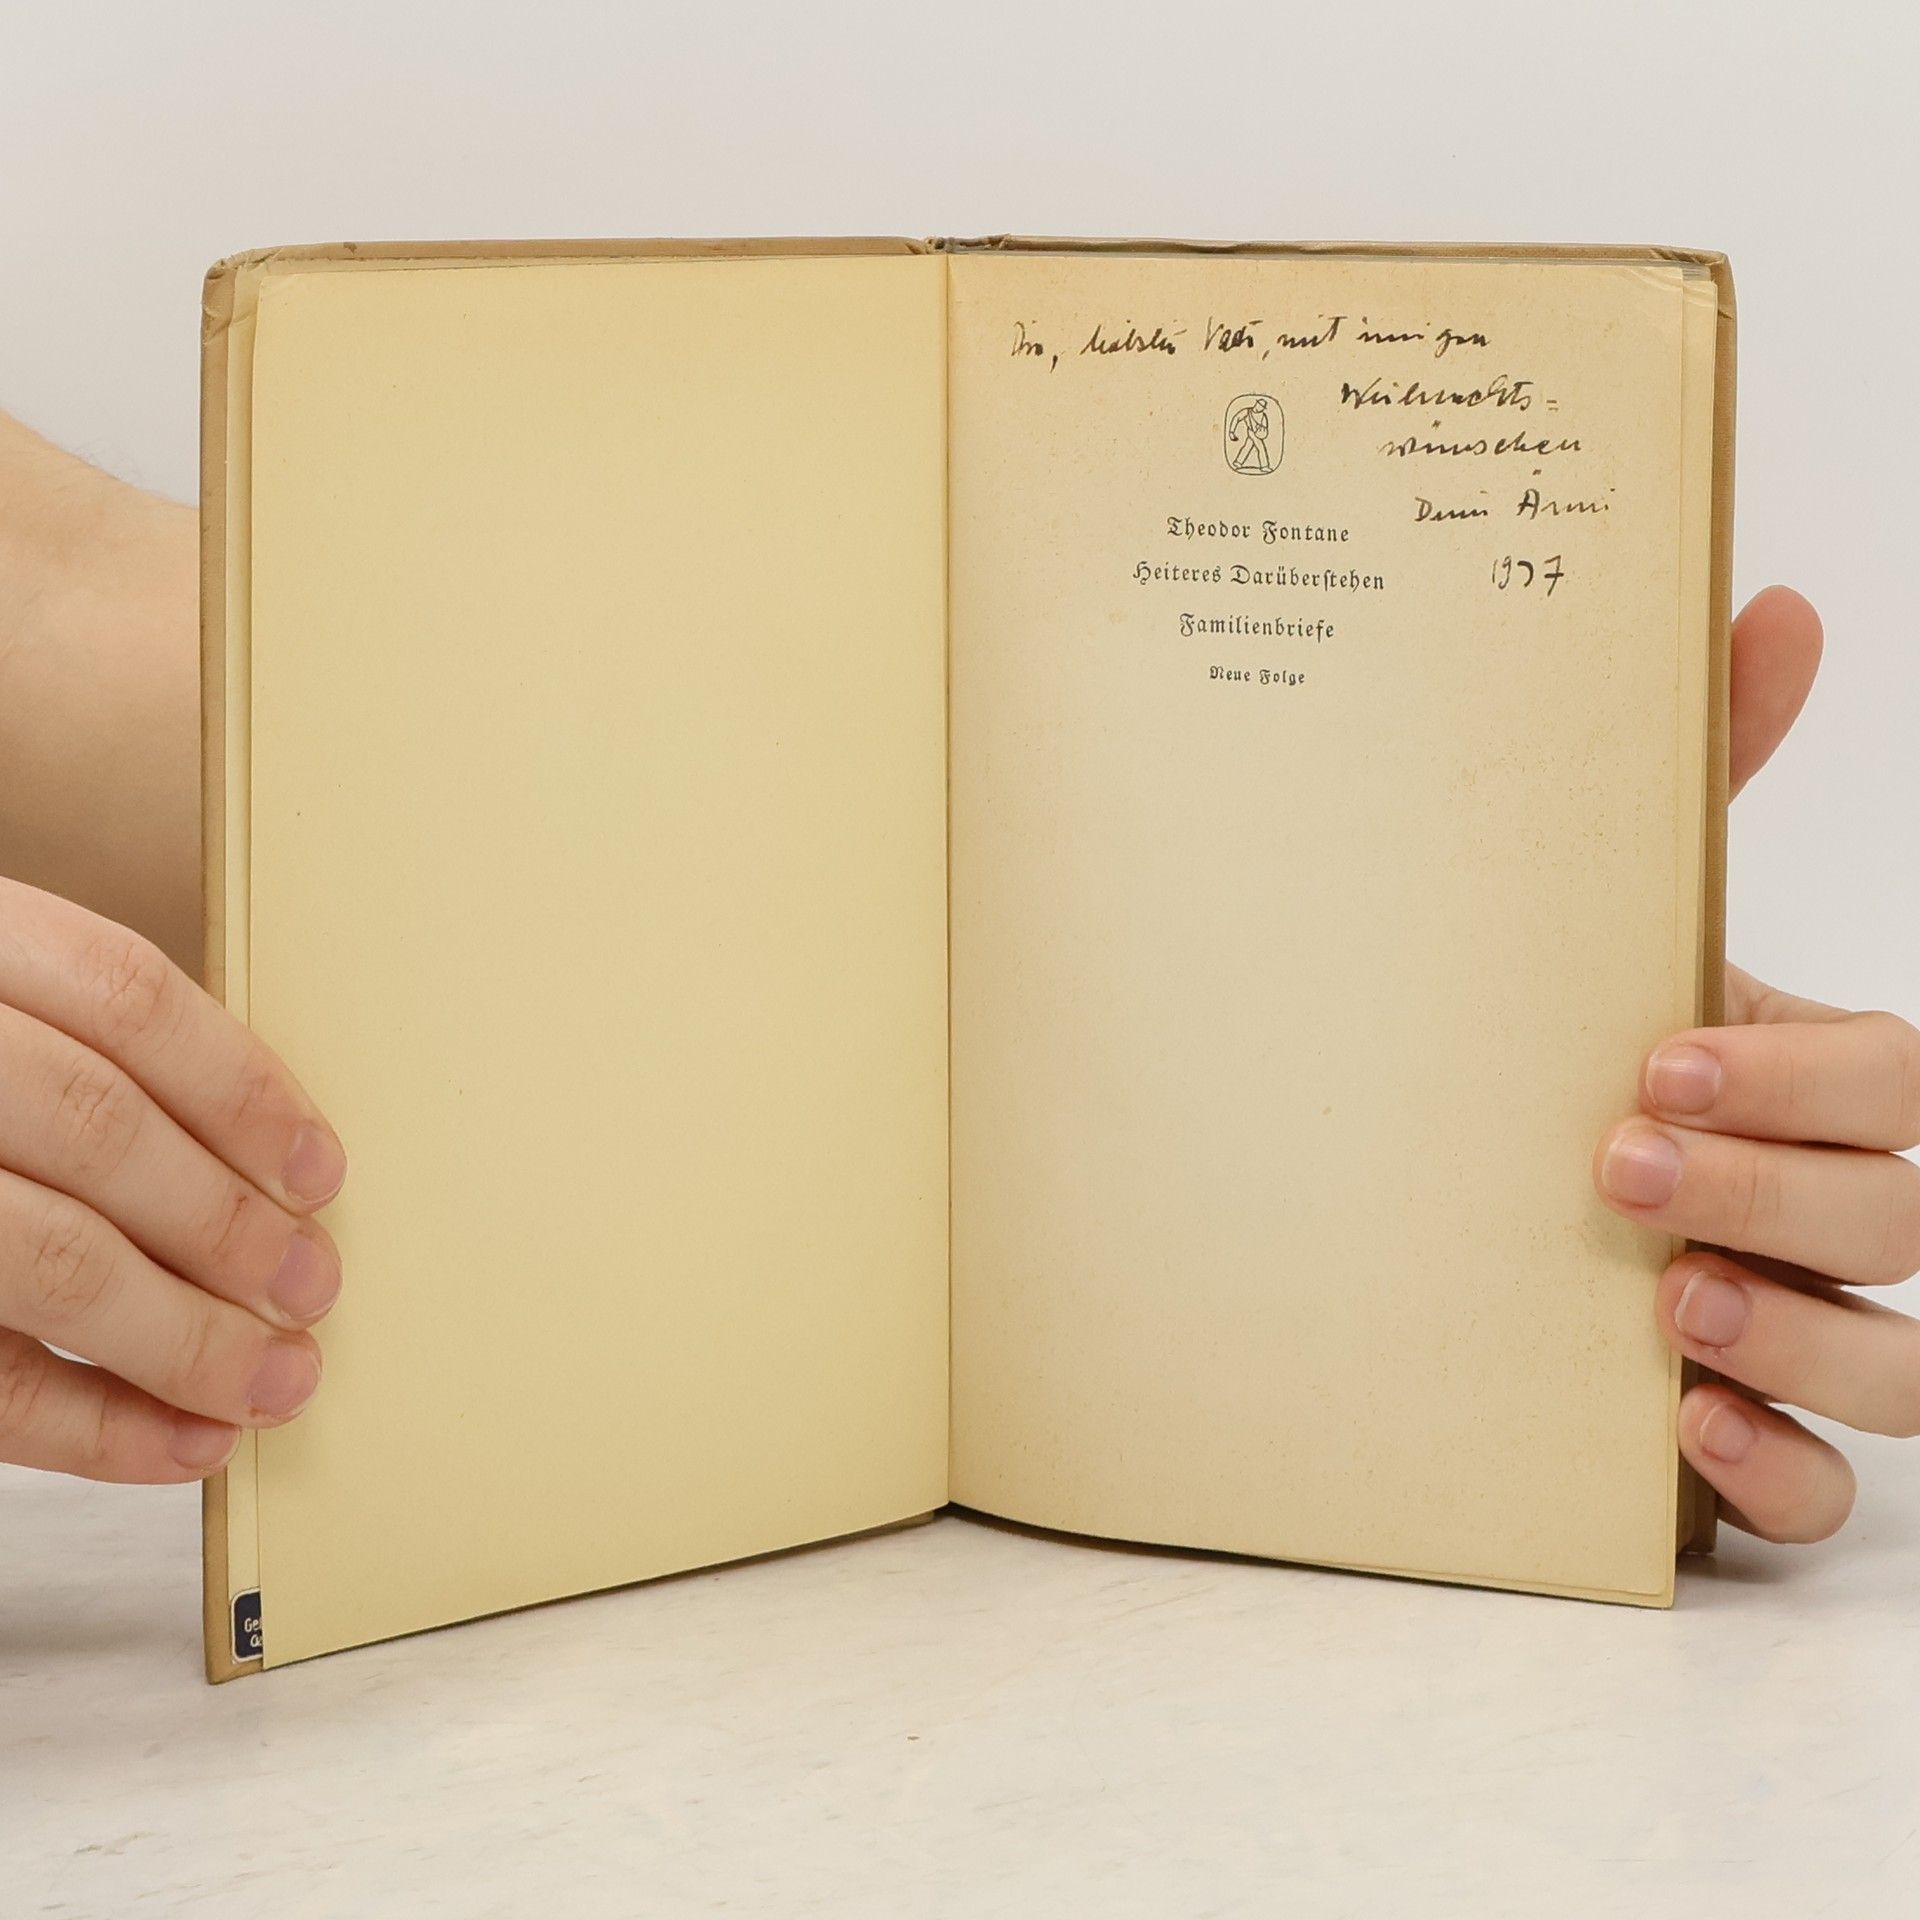 Dir, liebster Vater, mit innigen
Weihnachts=
wünschen
Dein
1937
Theodor Fontane
Heiteres Darüberstehen
Familienbriefe
Neue Folge